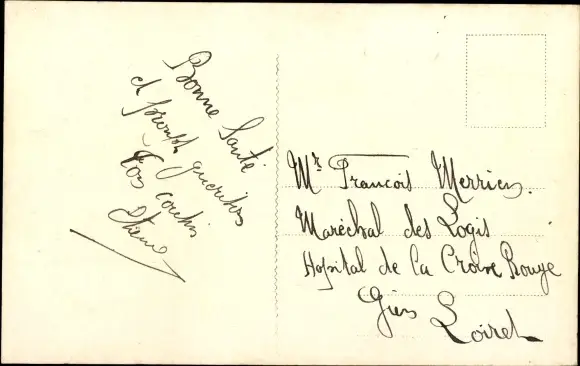 Bonne Santé
et prompte guérison
Ton cousin
Etienne
Mr. Francois Merrien.
Maréchal des Logis
Hopital de la Croix Rouge
Gien
Loiret